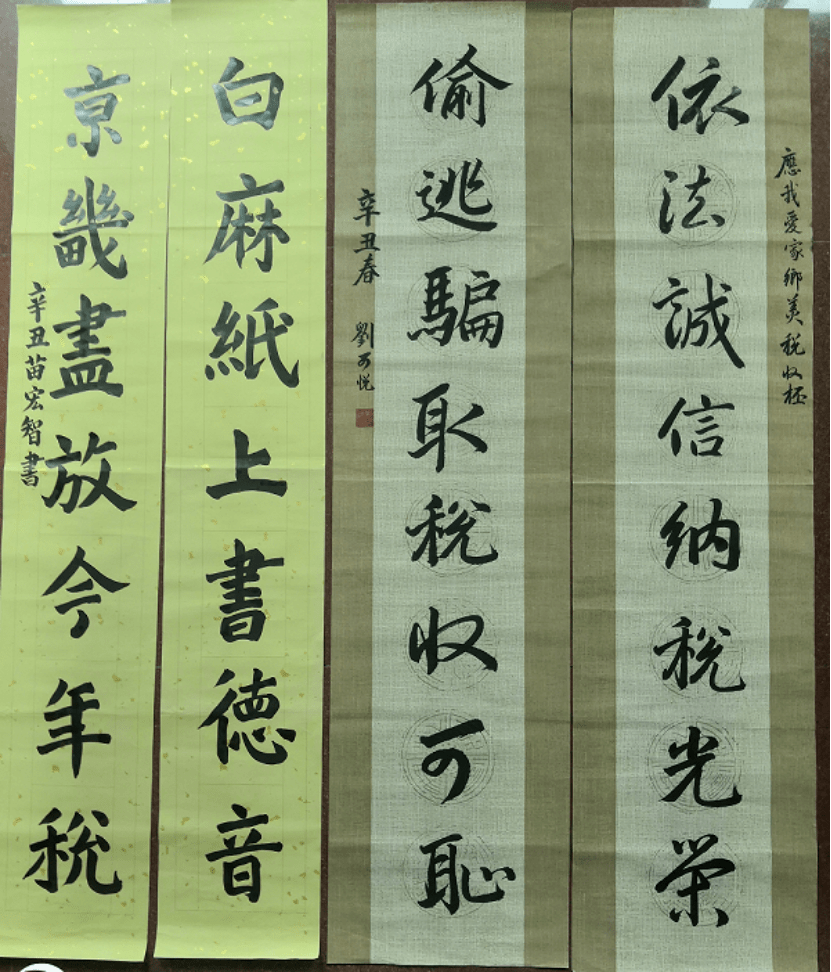 應我愛家鄉美稅收杯
依法誠信納稅光榮
偷逃騙取稅收可恥
辛丑春 劉可悅
白麻紙上書德音
京畿盡放今年稅
辛丑苗宏智書